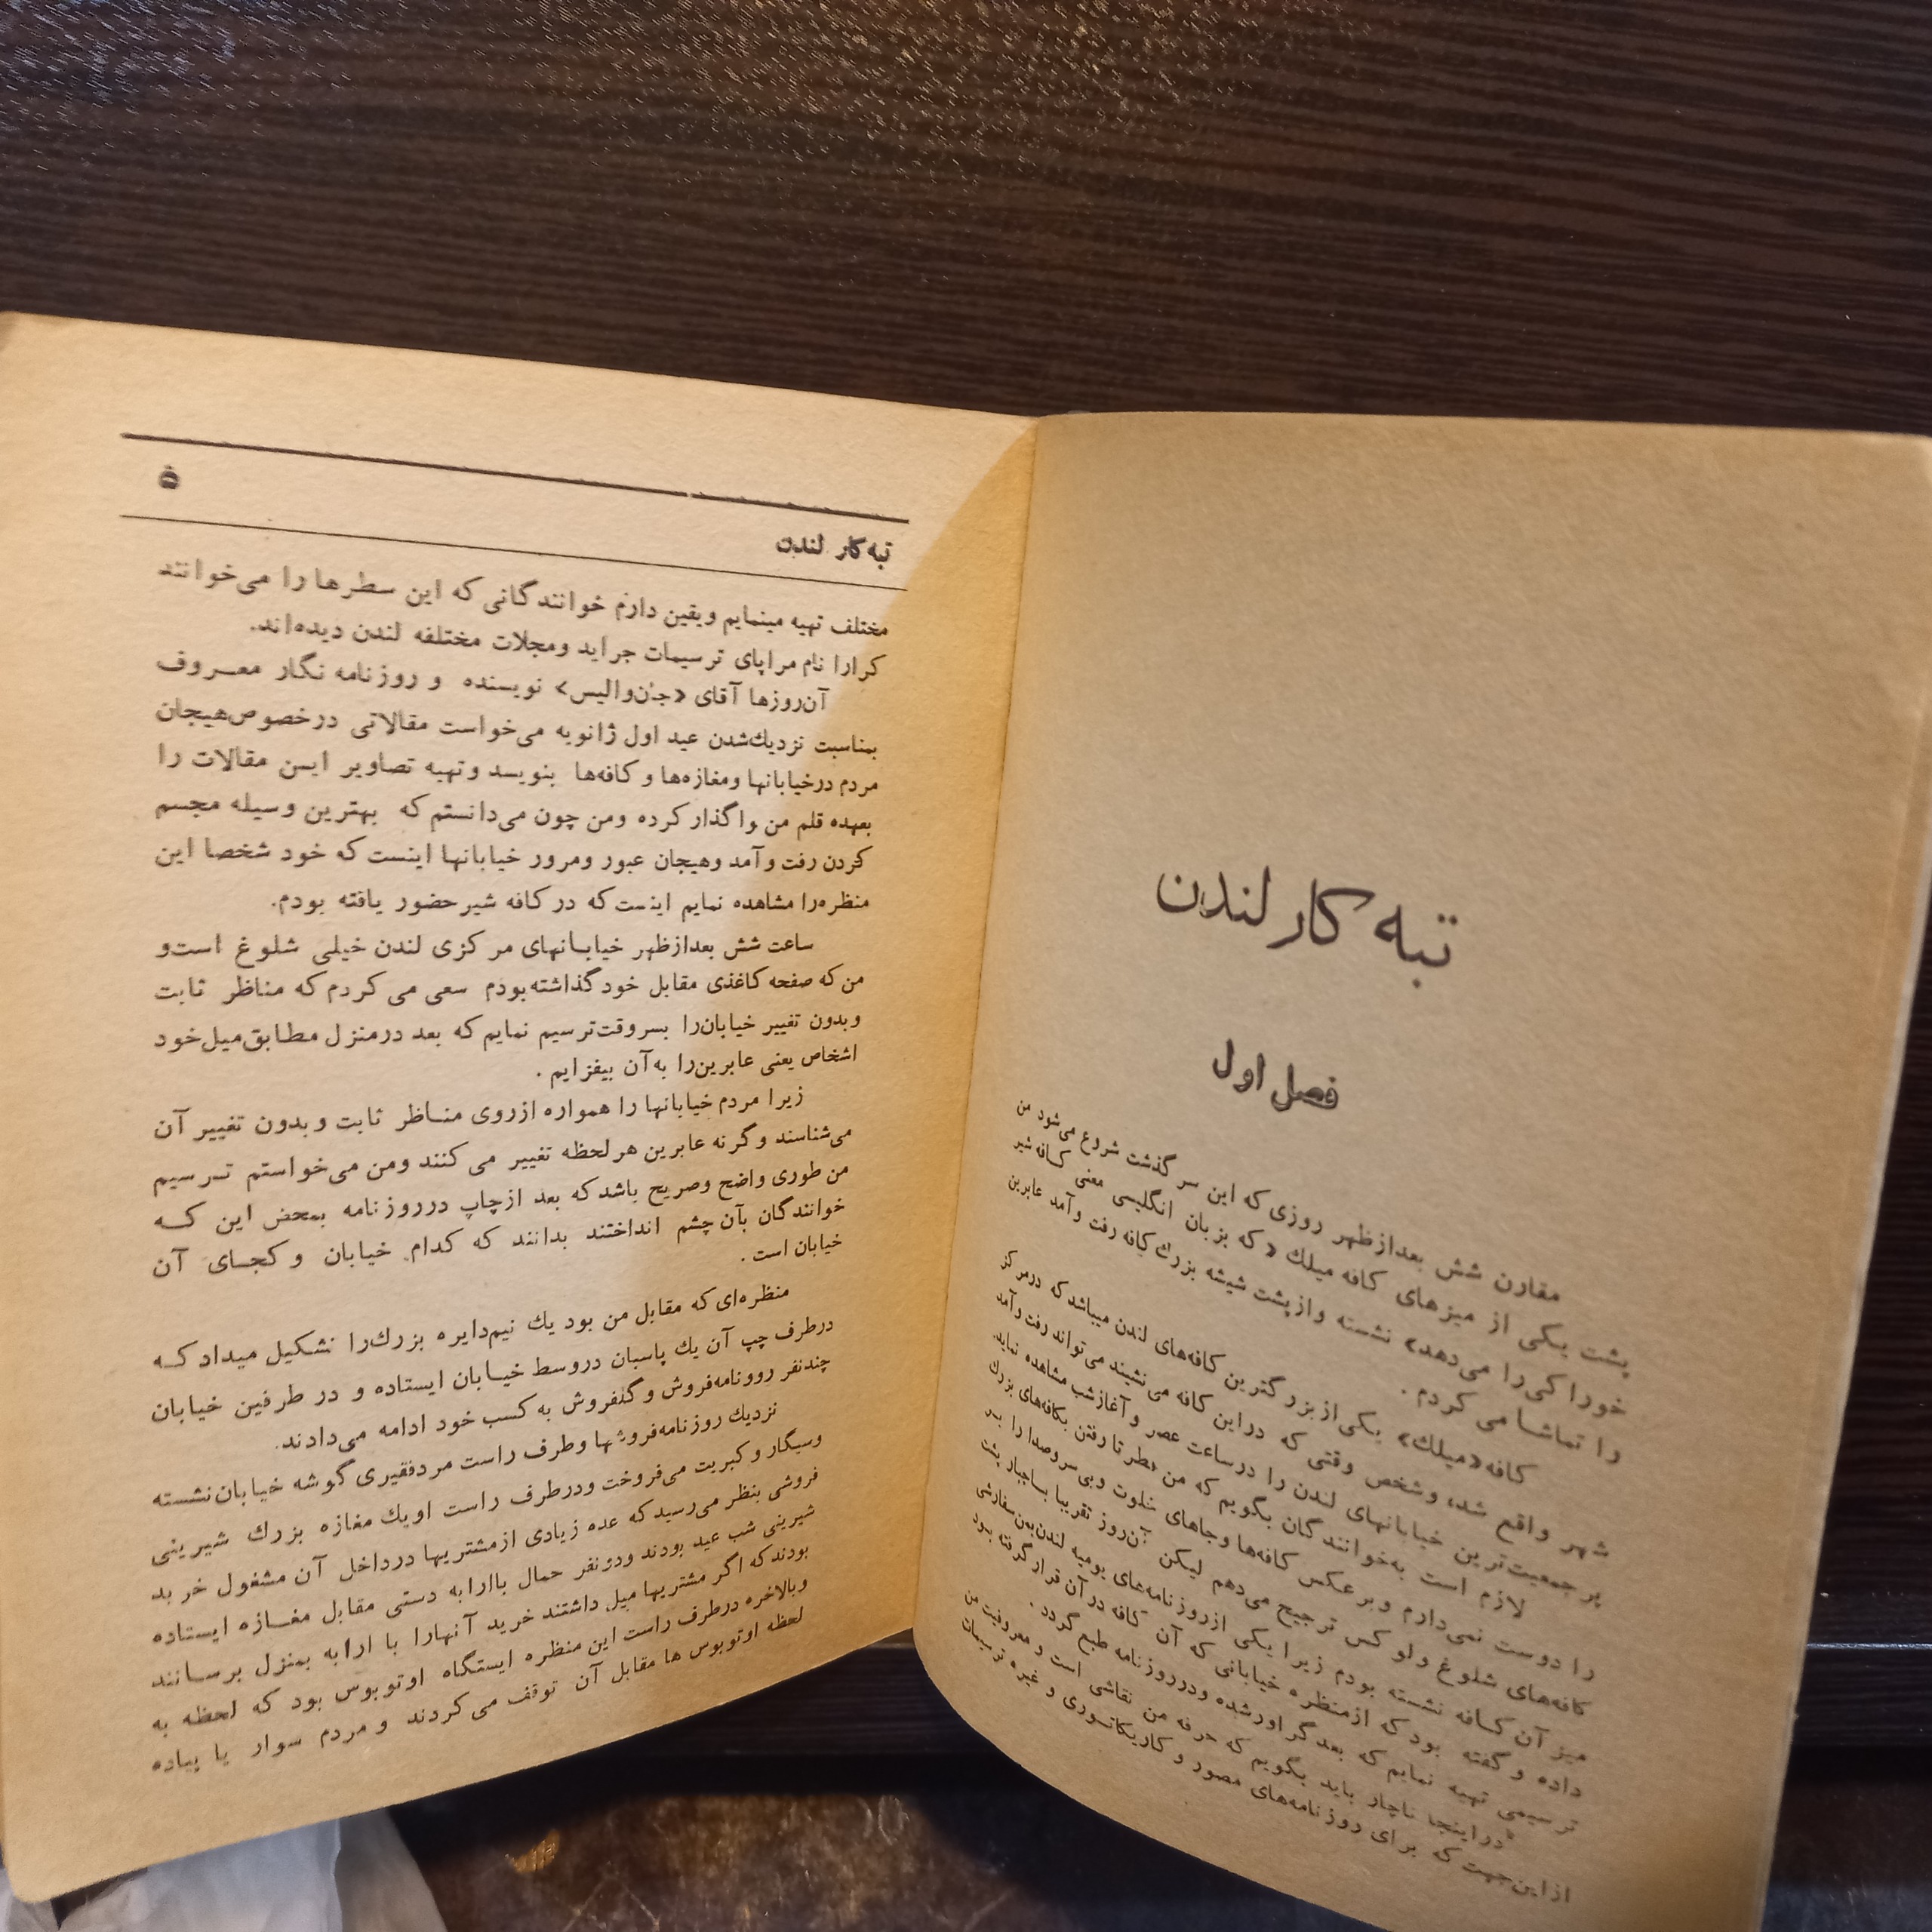 تبه کار لندن
فصل اول
مقارن شش بعدازظهر روزی که این سر گذشت شروع می‌شود من
پشت یکی از میزهای کافه میلك «که بزبان انگلیسی معنی کافه شیر
خوراکی را می‌دهد» نشسته واز پشت شیشه بزرك کافه رفت وآمد عابرین
را تماشا می کردم .
کافه «میلك» یکی از بزرگترین کافه‌های لندن میباشد که درمرکز
شهر واقع شده وشخص وقتی که دراین کافه می‌نشیند می‌تواند رفت وآمد
پر جمعیت‌ترین خیابانهای لندن را درساعت عصر و آغازشب مشاهده نماید.
لازم است به‌خوانندگان بگویم که من بطر تا رفتن بکافه‌های بزرك
را دوست نمی‌دارم وبر عکس کافه‌ها وجاهای خلوت وبی سروصدا را بر
کافه‌های شلوغ ولو کس ترجیح می‌دهم لیکن آن‌روز تقریبا باجبار پشت
میز آن کافه نشسته بودم زیرا یکی ازروزنامه‌های یومیه لندن‌بمن‌سفارشی
داده و گفته بود که ازمنظره خیابانی که آن کافه در آن قرار گرفته بود
ترسیمی تهیه نمایم که بعد گراورشده ودرروزنامه طبع گردد .
دراینجا ناچار باید بگویم که حرفه من نقاشی است و معروفیت من
ازاین‌جهت که برای روزنامه‌های مصور و کاریکاتوری و غیره ترسیمات
۵
تبه‌کار لندن
مختلف تهیه مینمایم ویقین دارم خوانندگانی که این سطرها را می‌خوانند
کرارا نام مراپای ترسیمات جراید ومجلات مختلفه لندن دیده‌اند.
آن‌روزها آقای «جان‌والیس» نویسنده و روزنامه نگار معـروف
بمناسبت نزدیك‌شدن عید اول ژانویه می‌خواست مقالاتی درخصوص‌هیجان
مردم درخیابانها ومغازه‌ها و کافه‌ها بنویسد وتهیه تصاویر ایـن مقالات را
بعهده قلم من واگذار کرده ومن چون می‌دانستم که بهترین وسیله مجسم
کردن رفت وآمد وهیجان عبور ومرور خیابانها اینست که خود شخصا این
منظره‌را مشاهده نمایم اینست که در کافه شیر حضور یافته بودم.
ساعت شش بعدازظهر خیابـانهای مرکزی لندن خیلی شلوغ است‌و
من که صفحه کاغذی مقابل خود گذاشته‌بودم سعی می کردم که مناظر ثابت
وبدون تغییر خیابان‌را بسروقت‌ترسیم نمایم که بعد درمنزل مطابق‌میل‌خود
اشخاص یعنی عابرین‌را به‌آن بیفزایم .
زیرا مردم خیابانها را همواره ازروی منـاظر ثابت وبدون تغییر آن
می‌شناسند وگرنه عابرین هرلحظه تغییر می کنند ومن می‌خواستم تـرسیم
من طوری واضح وصریح باشد که بعد ازچاپ درروزنامه بمحض این کـه
خوانندگان بآن چشم انداختند بدانند که کدام خیابان و کجـای آن
خیابان است .
منظره‌ای که مقابل من بود یك نیم‌دایره بزرك‌را تشکیل میداد کـه
درطرف چپ آن یك پاسبان دروسط خیـابان ایستاده و در طرفین خیابان
چندنفر روونامه‌فروش و گلفروش به کسب خود ادامه می‌دادند.
نزدیك روزنامه‌فروشها وطرف راست مردفقیری گوشه خیابان‌نشسته
وسیگار وکبریت می‌فروخت ودرطرف راست اویك مغازه بزرك شیرینی
فروشی بنظر می‌رسید که عده زیادی ازمشتریها درداخل آن مشغول خرید
شیرینی شب عید بودند ودونفر حمال باارابه دستی مقابل مغـازه ایستاده
بودند که اگر مشتریها میل داشتند خرید آنهارا با ارابه بمنزل برسـانند
وبالاخره درطرف راست این منظره ایستگاه اوتوبوس بود که لحظه به
لحظه اوتوبوس ها مقابل آن توقف می کردند و مردم سوار یا پیاده